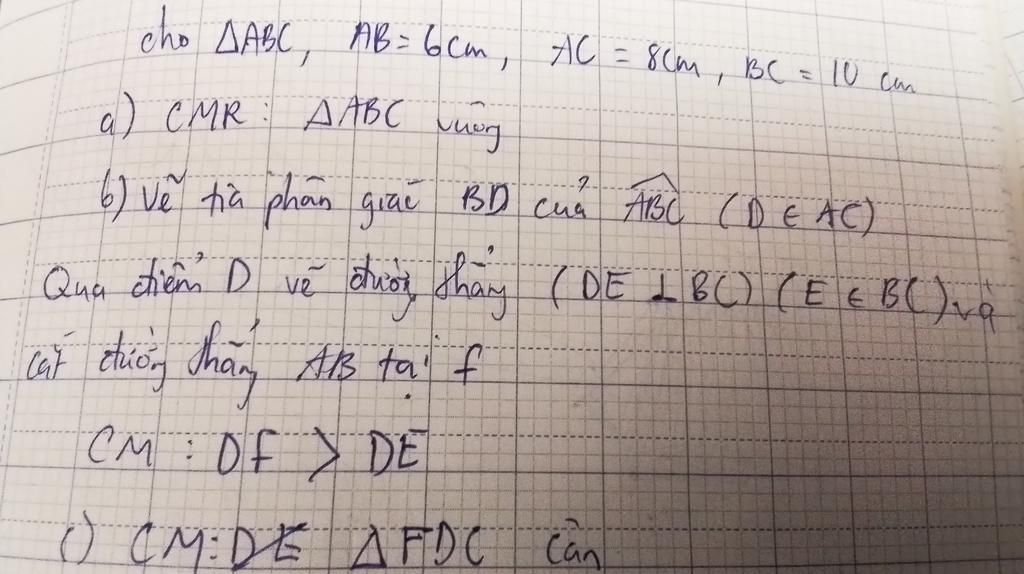 cho ΔABC, AB = 6cm, AC = 8cm, BC = 10 cm
a) CMR: ΔABC vuông
b) Vẽ tia phân giác BD của ABC (D ∈ AC)
Qua điểm D vẽ đường thẳng (DE ⊥ BC) (E ∈ BC) và
cắt đường thẳng AB tại f
CM: DF > DE
c) CM: ΔFDC cân